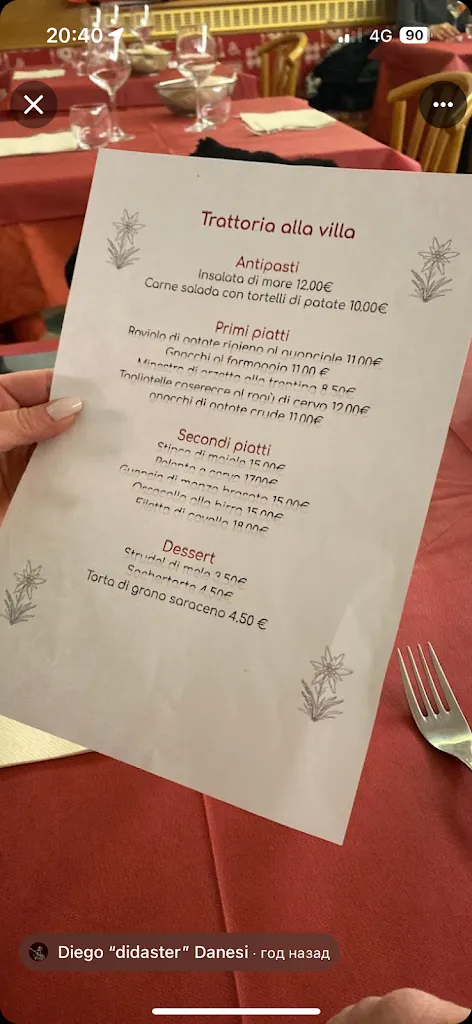 20:40
4G 90
Trattoria alla villa
Antipasti
Insalata di mare 12.00€
Carne salada con tortelli di patate 10.00€
Primi piatti
Raviolo di patate ripieno al guanciale 11.00€
Gnocchi al formaggio 11.00 €
Minestra di orzetto alla trentina 8.50€
Tagliatelle caserecce al ragù di cervo 12.00€
gnocchi di patate crude 11.00€
Secondi piatti
Stinco di maiale 15.00€
Polenta e cervo 17.00€
Guancia di manzo brasata 15.00€
Ossocollo alla birra 15.00€
Filetto di cavallo 18.00€
Dessert
Strudel di mele 3.50€
Sachertorte 4.50€
Torta di grano saraceno 4.50 €
Diego “didaster” Danesi · год назад